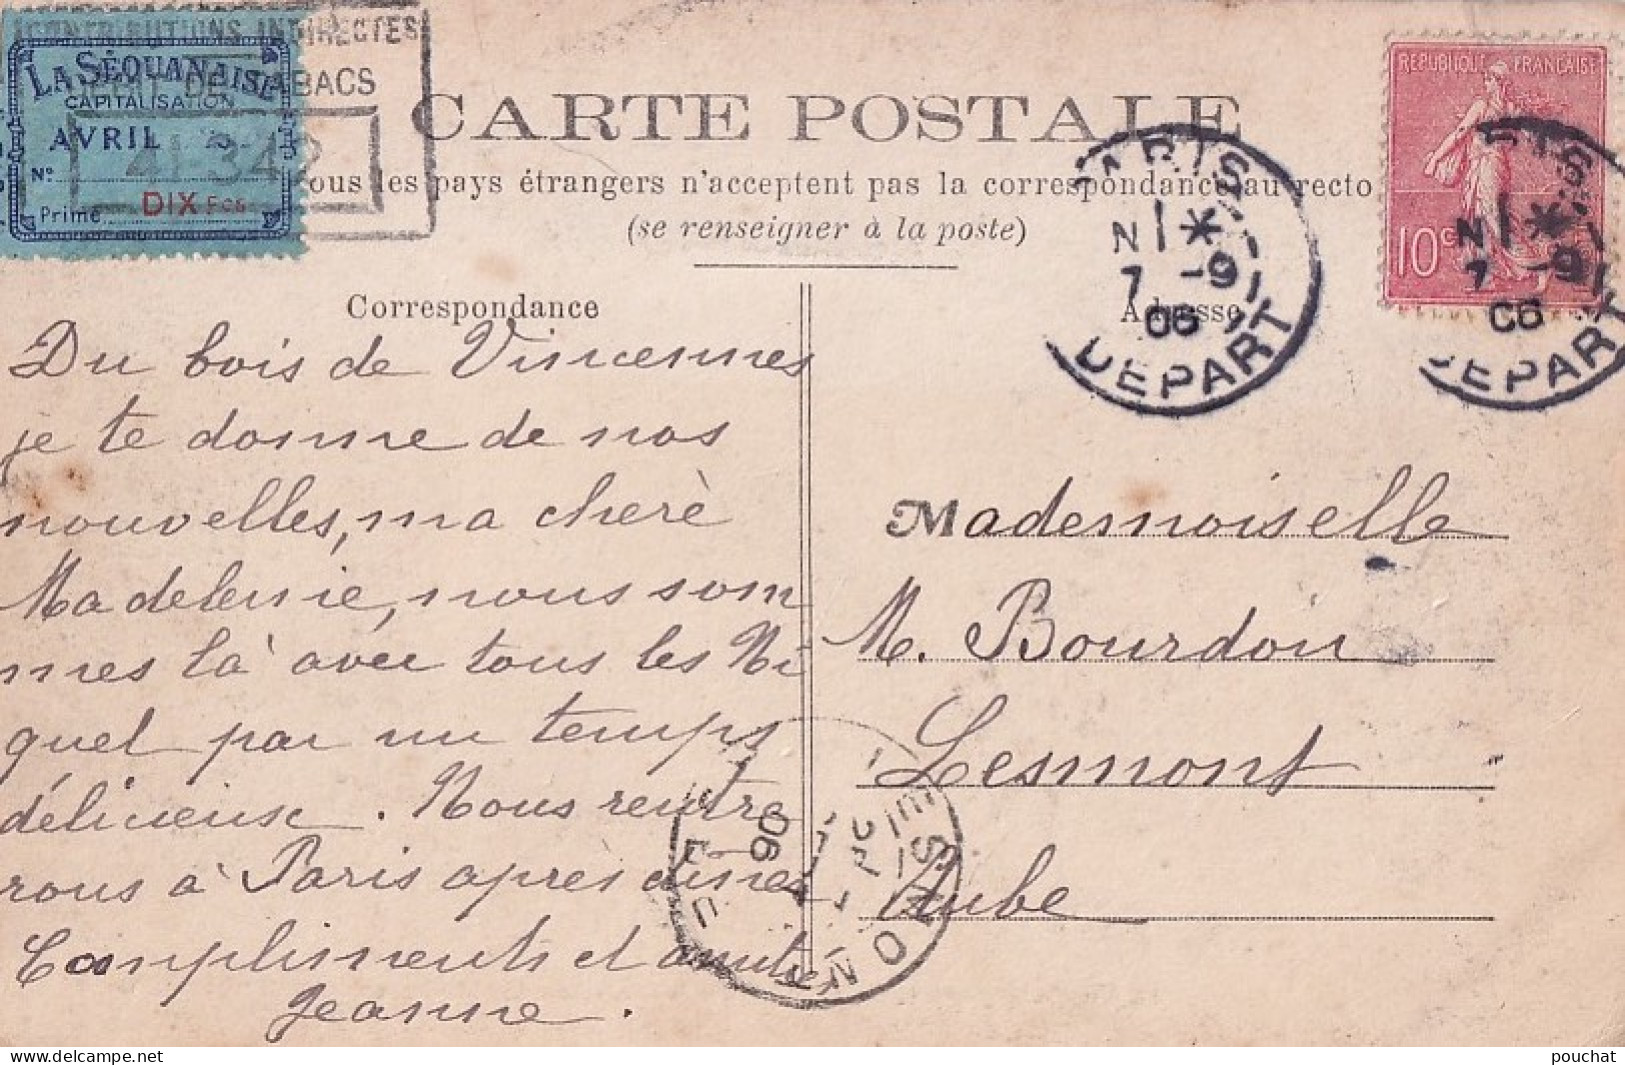 CONTRIBUTIONS INDIRECTES
TABACS
41-342
LA SÉQUANAISE
CAPITALISATION
AVRIL
No
Prime DIX Fcs
CARTE POSTALE
ous les pays étrangers n'acceptent pas la correspondance au recto
(se renseigner à la poste)
REPUBLIQUE FRANÇAISE
10c
PARIS
N 1 *
7 -9
06
DEPART
N 1 *
7 -9
06
DEPART
Correspondance
Du bois de Vincennes
je te donne de nos
nouvelles, ma cherè
Madeleine, nous som
mes là avec tous les Ni
quel par un temps
délicieuse. Nous rentre
rons à Paris après diner
Compliments et amitié
Jeanne.
Adresse
Mademoiselle
M. Bourdon
Lesmont
Aube
LESMONT
06
pouchat
© delcampe.net